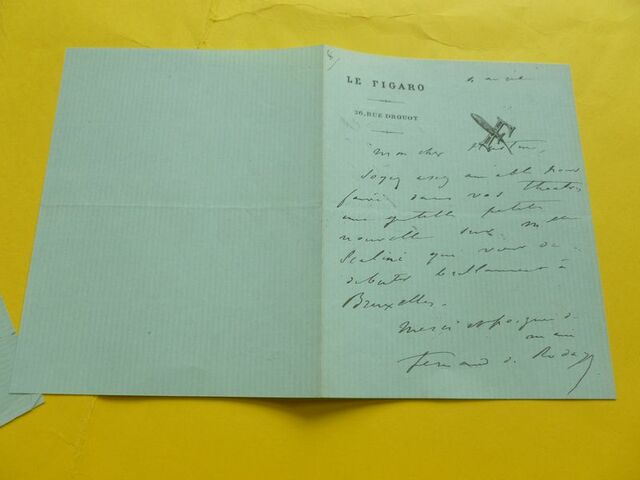 LE FIGARO
26, RUE DROUOT
Mon cher
Soyez assez aimable pour
faire dans vos théatres
une gentille petite
nouvelle sur Mlle
qui vient de
débuter brillamment à
Bruxelles.
Merci et poignée de
main
Fernand de Rodays